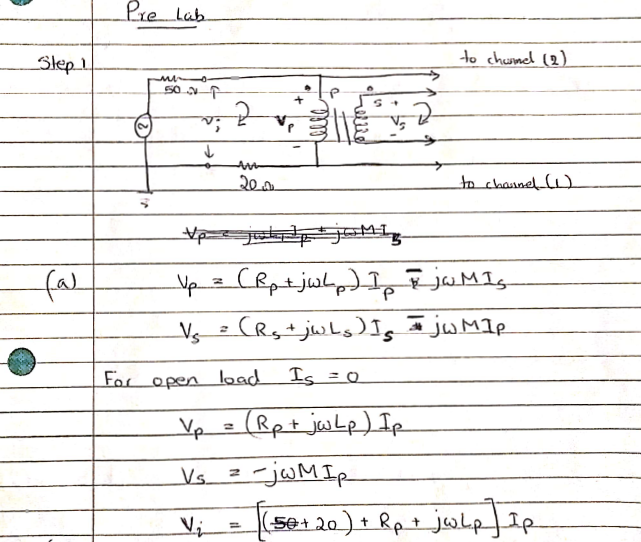 Pre Lab
Step 1
to channel (2)
50 Ω
+ P S +
~ v_i V_p V_s
- -
20 Ω
to channel (1)
V_p = jωL_p I_p + jωM I_s
(a) V_p = (R_p + jωL_p) I_p - jωM I_s
V_s = (R_s + jωL_s) I_s - jωM I_p
For open load I_s = 0
V_p = (R_p + jωL_p) I_p
V_s = -jωM I_p
V_i = [(50 + 20) + R_p + jωL_p] I_p